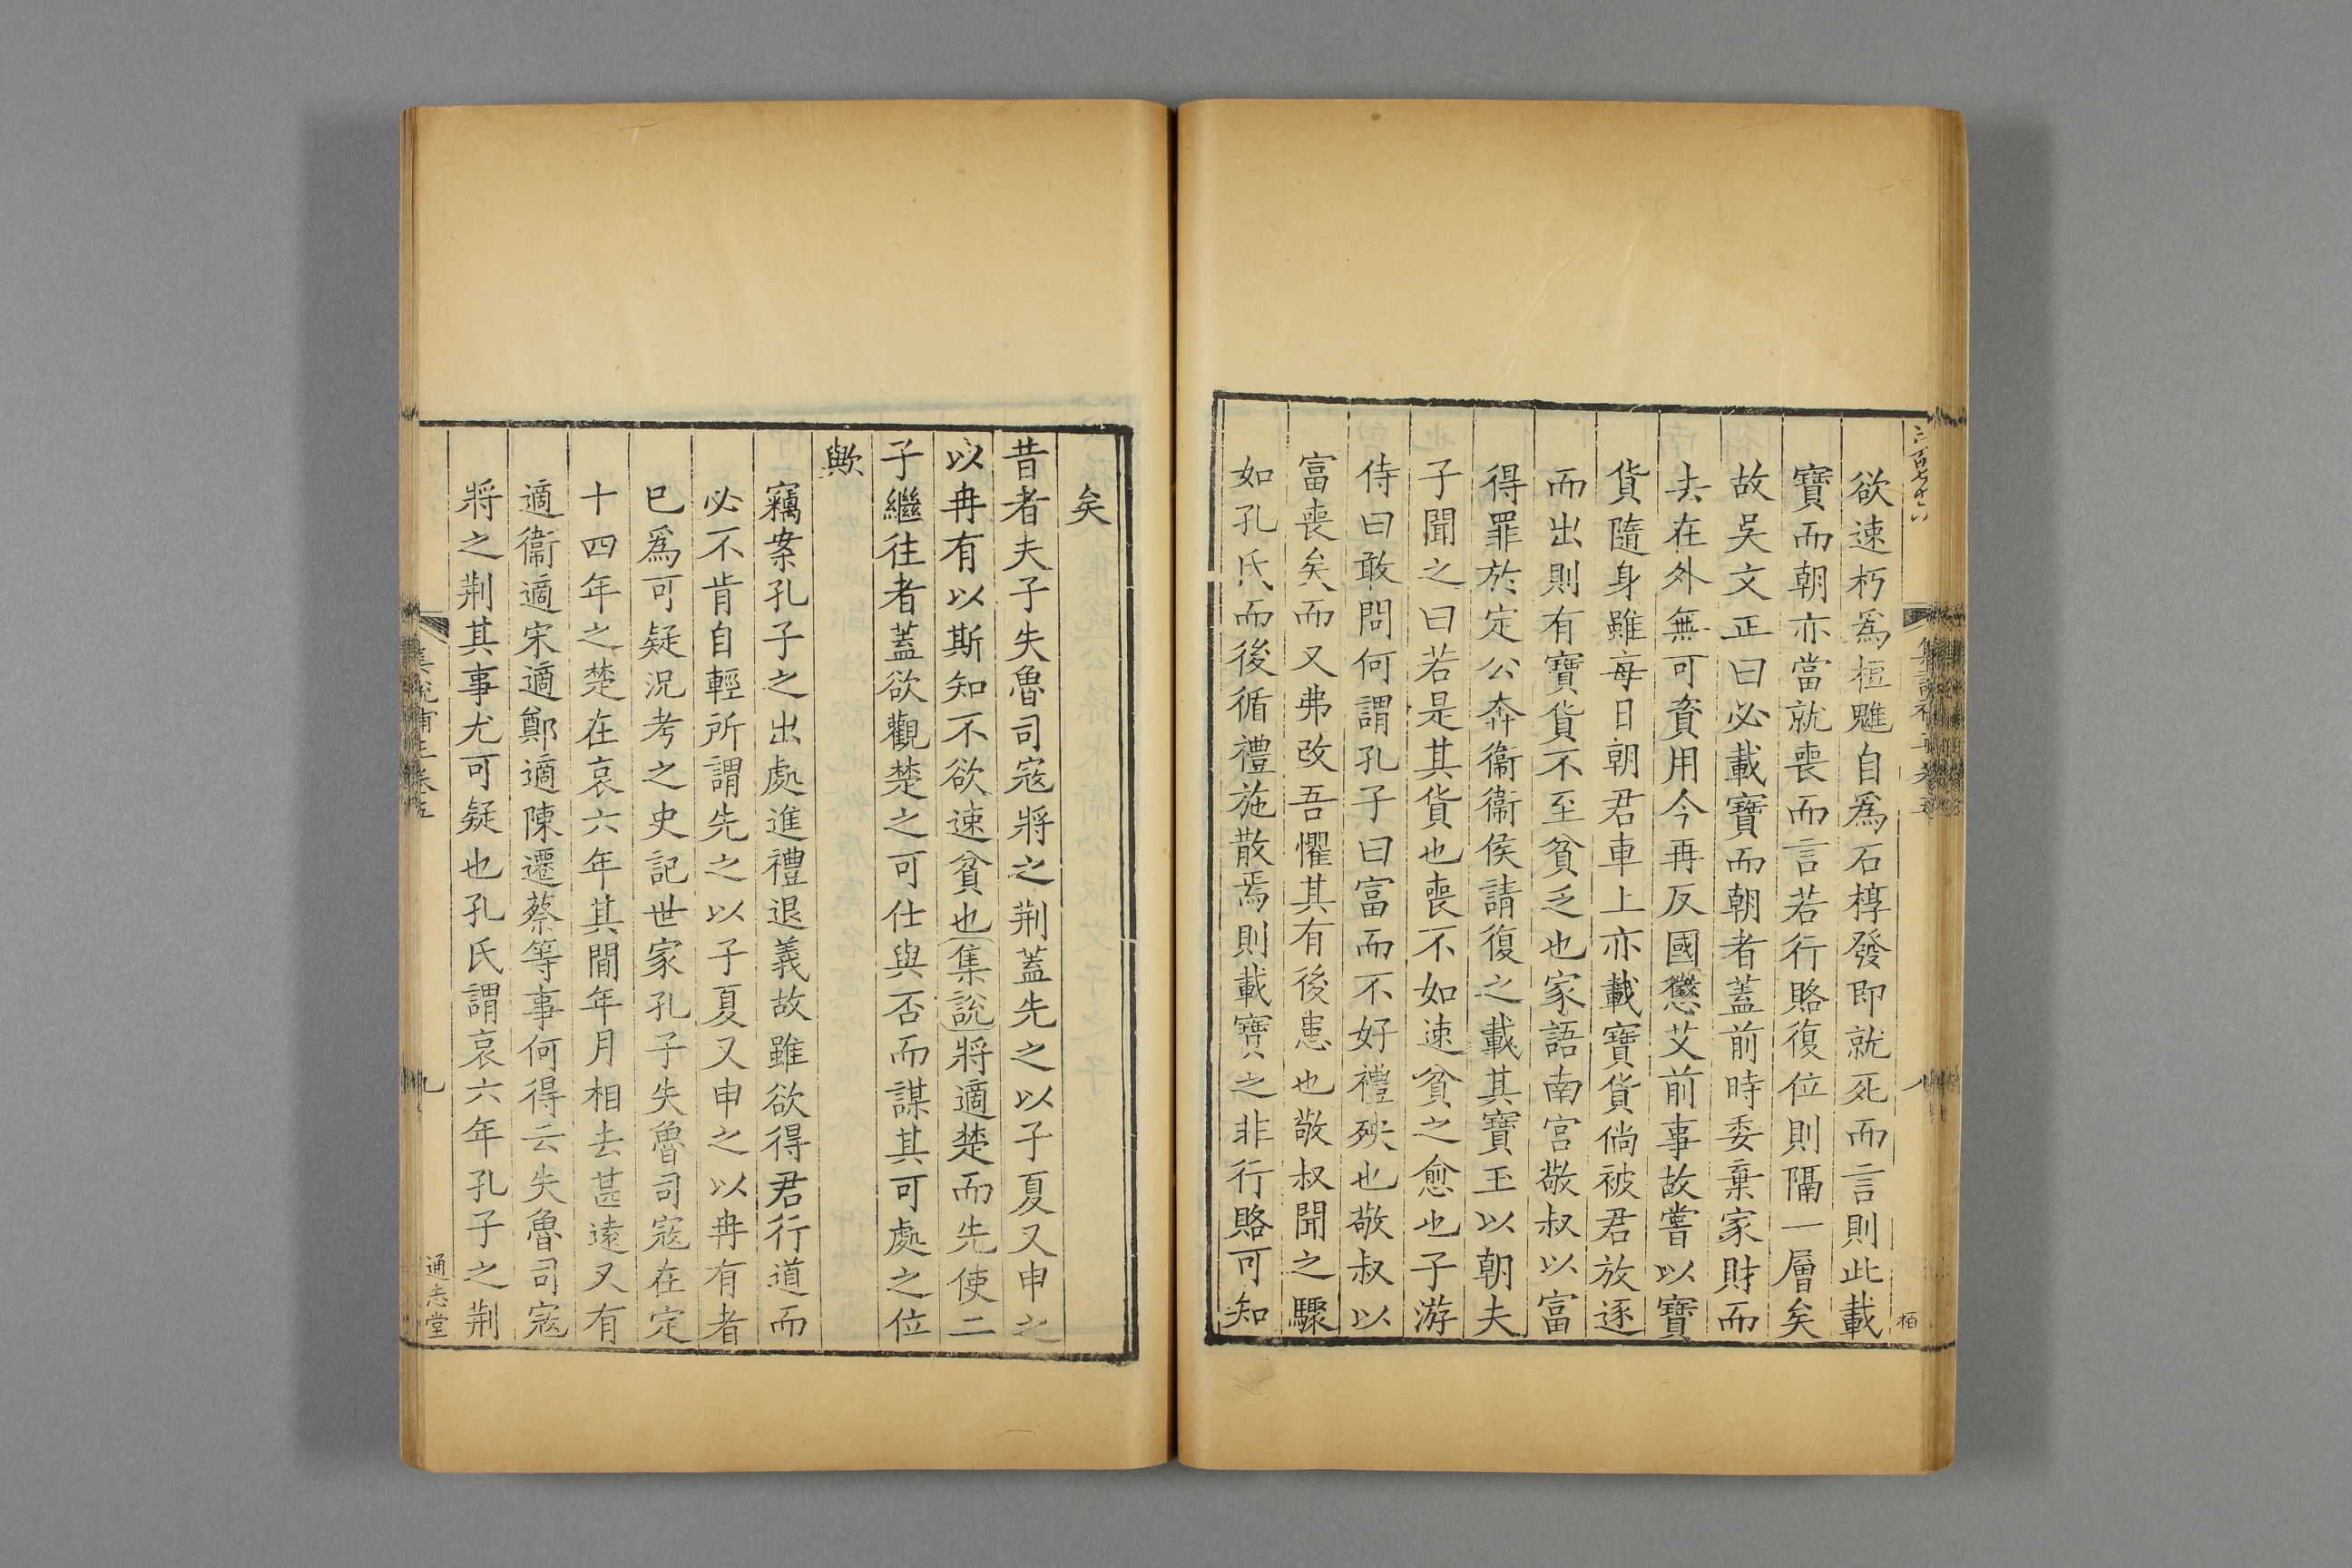 欲速朽爲桓魋自爲石椁發即就死而言則此載
寶而朝亦當就喪而言若行賂復位則隔一層矣
故吳文正曰必載寶而朝者蓋前時委棄家財而
去在外無可資用今再反國懲艾前事故嘗以寶
貨隨身雖每日朝君車上亦載寶貨倘被君放逐
而出則有寶貨不至貧乏也家語南宮敬叔以富
得罪於定公奔衞衞侯請復之載其寶玉以朝夫
子聞之曰若是其貨也喪不如速貧之愈也子游
侍曰敢問何謂孔子曰富而不好禮殃也敬叔以
富喪矣而又弗改吾懼其有後患也敬叔聞之驟
如孔氏而後循禮施散焉則載寶之非行賂可知
矣
昔者夫子失魯司寇將之荆蓋先之以子夏又申之
以冉有以斯知不欲速貧也集說將適楚而先使二
子繼往者蓋欲觀楚之可仕與否而謀其可處之位
歟
竊案孔子之出處進禮退義故雖欲得君行道而
必不肯自輕所謂先之以子夏又申之以冉有者
已爲可疑況考之史記世家孔子失魯司寇在定
十四年之楚在哀六年其間年月相去甚遠又有
適衞適宋適鄭適陳遷蔡等事何得云失魯司寇
將之荆其事尤可疑也孔氏謂哀六年孔子之荆
九
通志堂